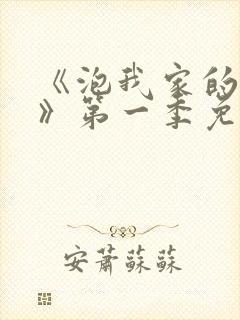 《泡我家的
》第一季免
安萧苏苏